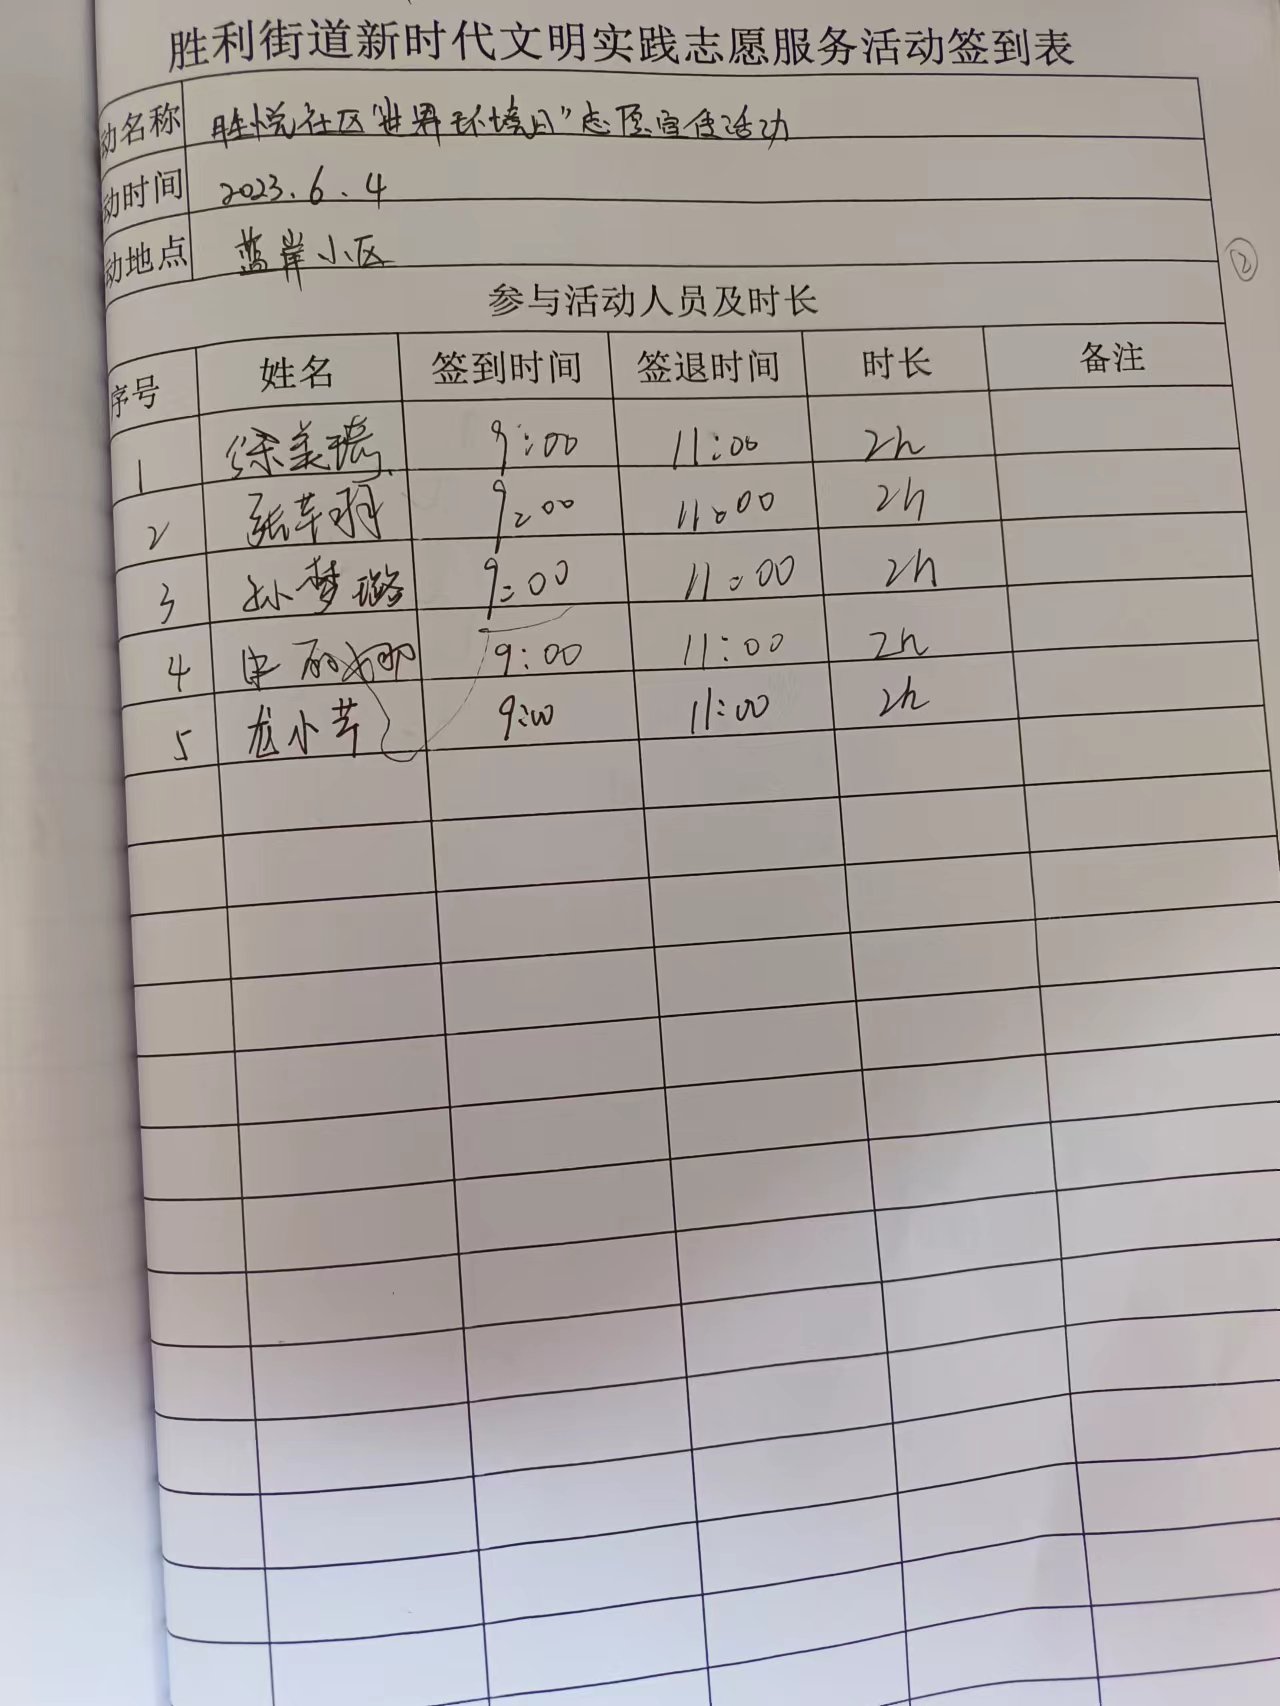 胜利街道新时代文明实践志愿服务活动签到表
动名称 胜悦社区"世界环境日"志愿宣传活动
动时间 2023.6.4
动地点 蓝岸小区
②
参与活动人员及时长
序号 姓名 签到时间 签退时间 时长 备注
1 徐美 9:00 11:00 2h
2 张 9:00 11:00 2h
3 孙梦璐 9:00 11:00 2h
4 申丽娜 9:00 11:00 2h
5 龙小芹 9:00 11:00 2h